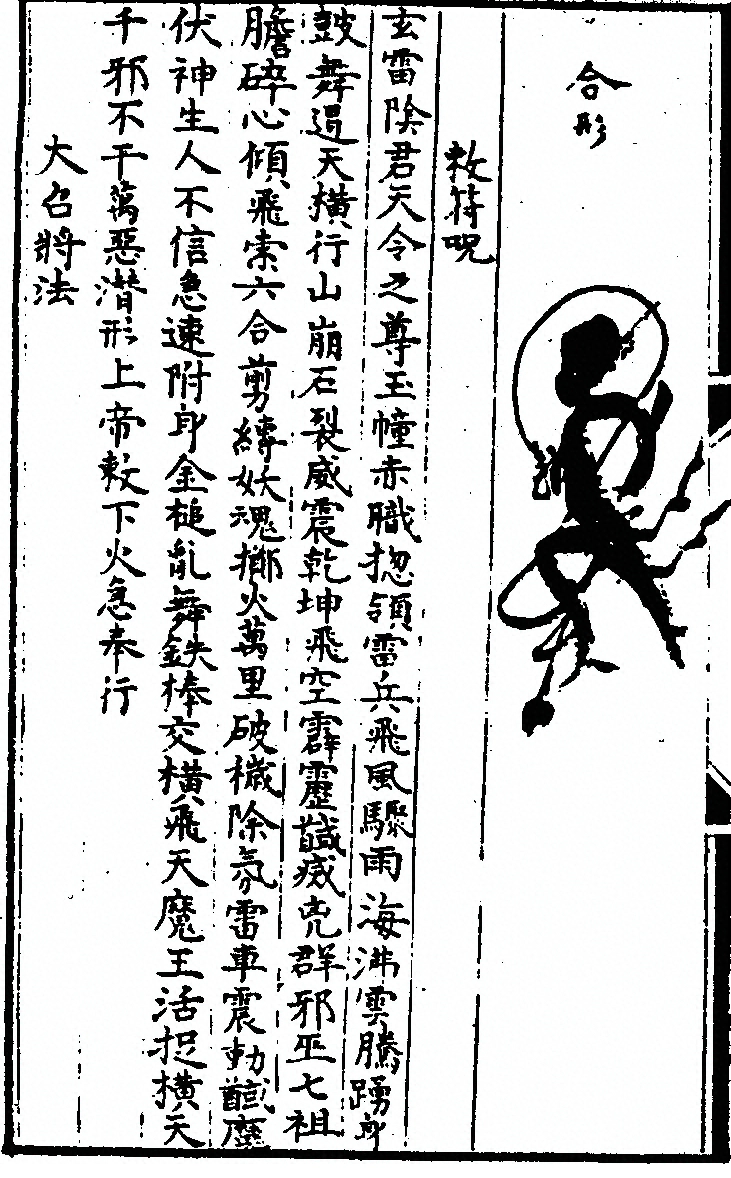 合形
敕符呪
玄雷陰君天令之尊玉幢赤職揔領雷兵飛風驟雨海沸雲騰踴躍
鼓舞遏天橫行山崩石裂威震乾坤飛空霹靂馘滅兇群邪巫七祖
膽碎心傾飛索六合剪縛妖魂擲火萬里破穢除氛雷車震動馘魔
伏神生人不信急速附身金槌亂舞鉄棒交橫飛天魔王活捉橫天
千邪不干萬惡潛形上帝敕下火急奉行
大召將法